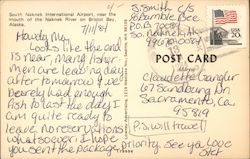 South Naknek International Airport, near the
Mouth of the Naknek River on Bristol Bay,
Alaska.
7/11/84
Howdy My
Looks like the end
is near, many fisher-
men are leaving day
after tomorrow!
barely had enough
fish to last the day I
am quite ready to
leave no reservations
whatsoever. I hope
you sent the package
J. Smith c/s
Bumble Bee
P.O.B.
So. Naknek, Ak
POST CARD
Address
Claudette Gangler
67 Sandburg Dr
Sacramento, Ca
95819
P.S. will travel
priority. See ya Love